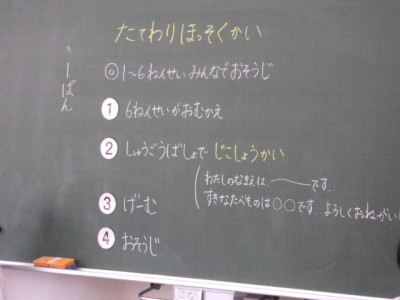 たてわりほっそくかい
◎1〜6ねんせいみんなでおそうじ
1 6ねんせいがおむかえ
2 しゅうごうばしょで じこしょうかい
わたしのなまえは、――です。
すきなたべものは○○です。よろしくおねがい
3 げーむ
4 おそうじ